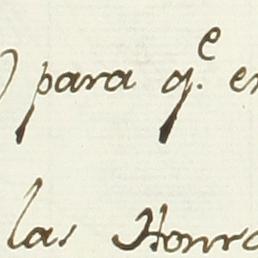 para q.e en
las Honra